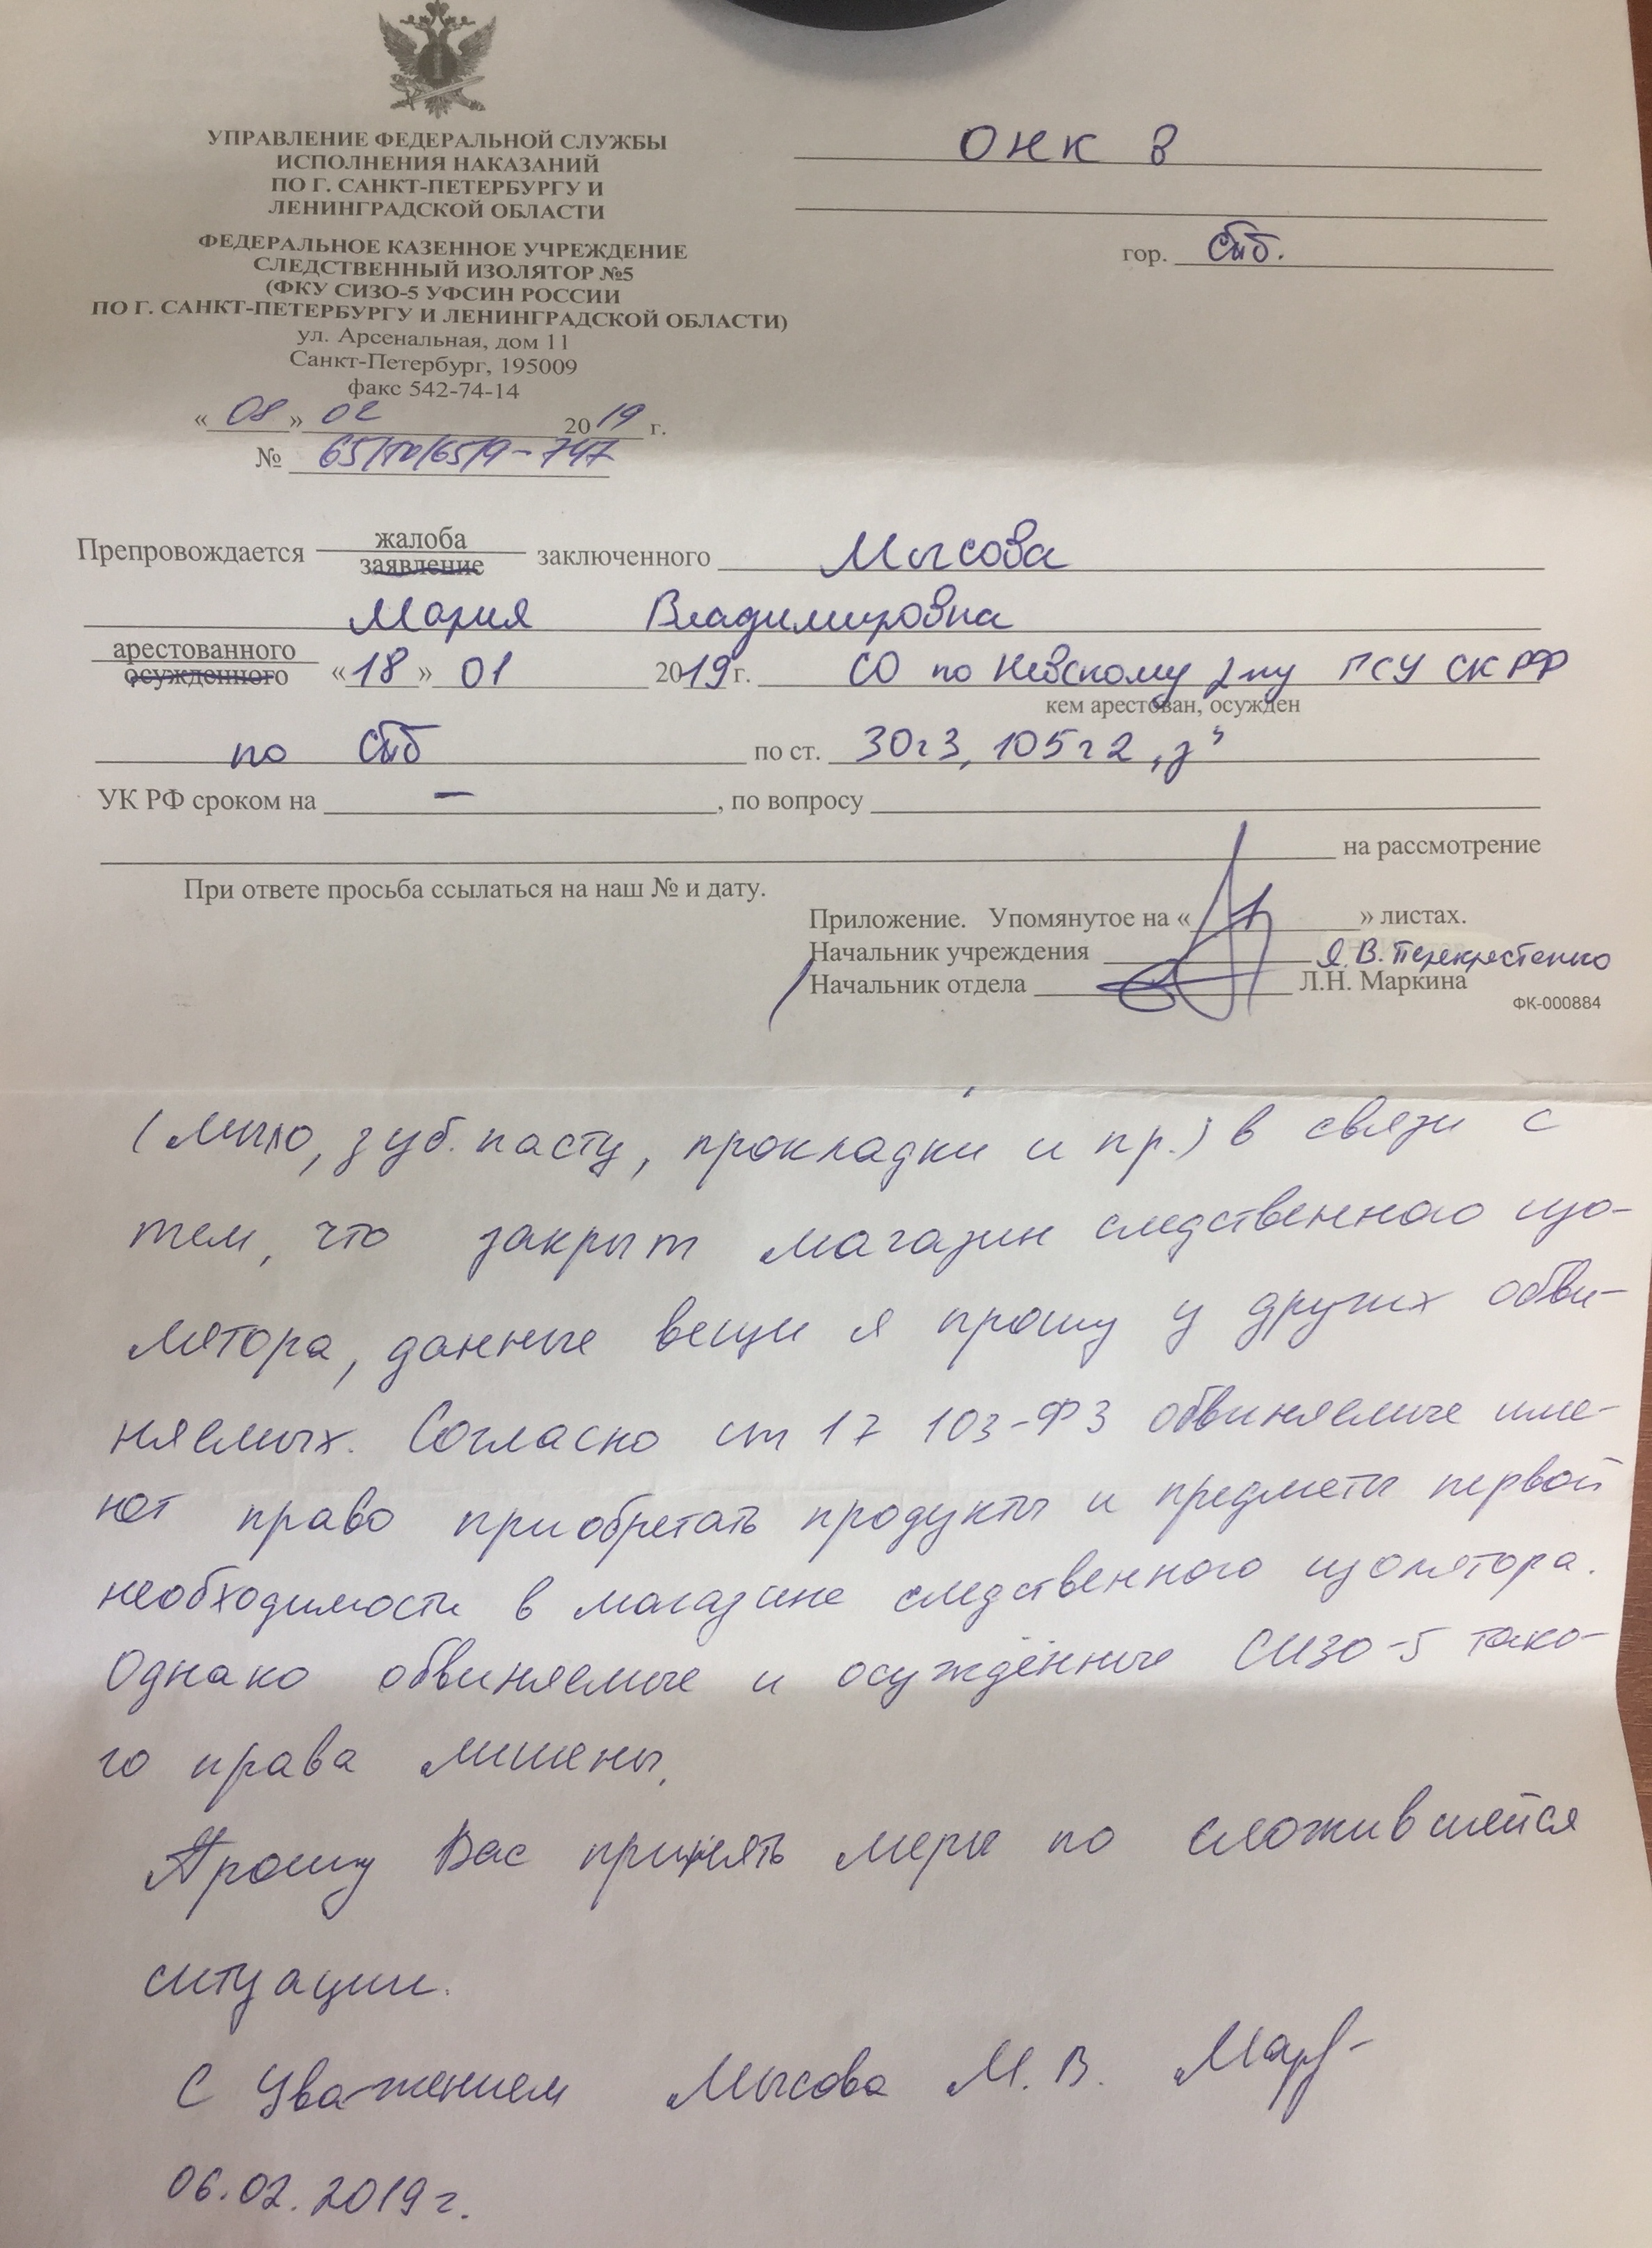 УПРАВЛЕНИЕ ФЕДЕРАЛЬНОЙ СЛУЖБЫ
ИСПОЛНЕНИЯ НАКАЗАНИЙ
ПО Г. САНКТ-ПЕТЕРБУРГУ И
ЛЕНИНГРАДСКОЙ ОБЛАСТИ
ФЕДЕРАЛЬНОЕ КАЗЕННОЕ УЧРЕЖДЕНИЕ
СЛЕДСТВЕННЫЙ ИЗОЛЯТОР №5
(ФКУ СИЗО-5 УФСИН РОССИИ
ПО Г. САНКТ-ПЕТЕРБУРГУ И ЛЕНИНГРАДСКОЙ ОБЛАСТИ)
ул. Арсенальная, дом 11
Санкт-Петербург, 195009
факс 542-74-14
« 08 » 02 2019 г.
№ 65/ТО/65/9-747
ОНК в
гор. СПб.
Препровождается жалоба заключенного Мысова
заявление
Мария Владимировна
арестованного
осужденного «18» 01 2019 г. СО по Невскому р-ну ГСУ СК РФ
кем арестован, осужден
по СПб по ст. 30ч3, 105ч2 „з"
УК РФ сроком на — , по вопросу
на рассмотрение
При ответе просьба ссылаться на наш № и дату.
Приложение. Упомянутое на « » листах.
Начальник учреждения Я.В. Перекрестенко
Начальник отдела Л.Н. Маркина
ФК-000884
(мыло, зуб. пасту, прокладки и пр.) в связи с
тем, что закрыт магазин следственного изо-
лятора, данные вещи я прошу у других обви-
няемых. Согласно ст 17 103-ФЗ обвиняемые име-
ют право приобретать продукты и предметы первой
необходимости в магазине следственного изолятора.
Однако обвиняемые и осуждённые СИЗО-5 тако-
го права лишены.
Прошу Вас принять меры по сложившейся
ситуации.
С Уважением Мысова М.В.
06.02.2019г.